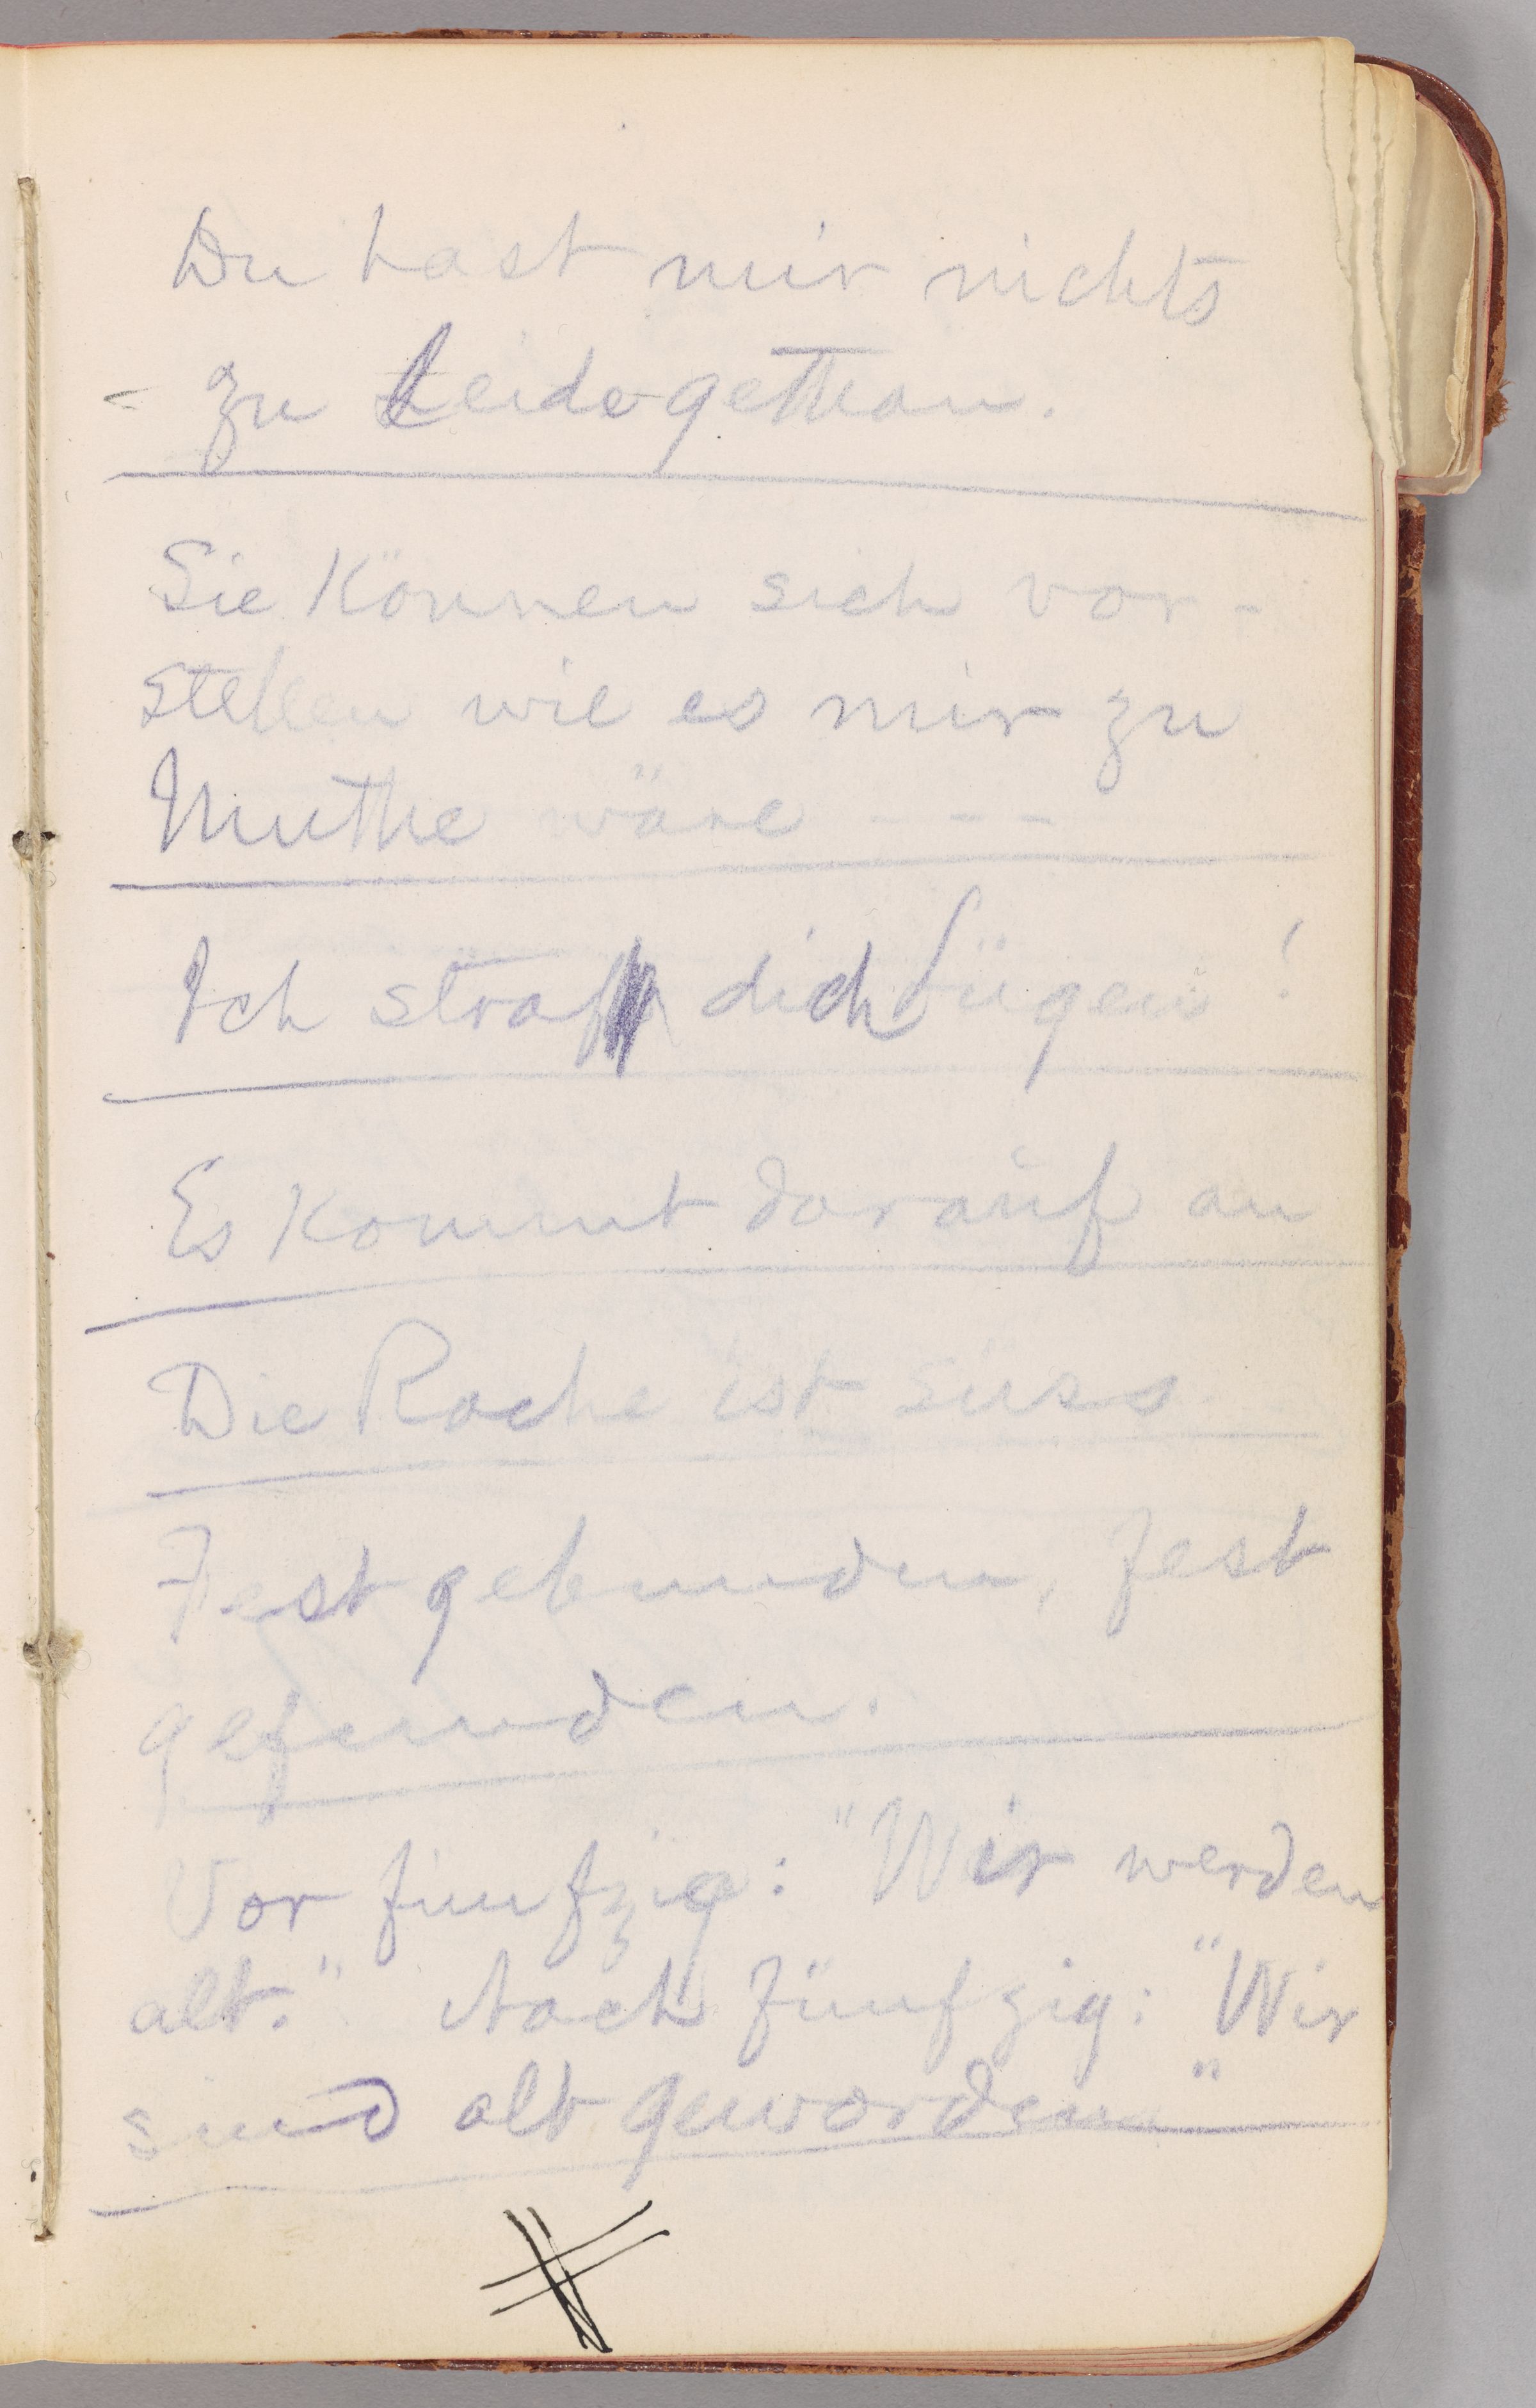 Du hast mir nichts
zu Leide gethan.
Sie können sich vor-
stellen wie es mir zu
Muthe wäre - - -
Ich straf dich Lügen!
Es kommt darauf an
Die Rache ist süss.
Fest gebunden, fest
gefunden.
Vor fünfzig: "Wir werden
alt." Nach fünfzig: "Wir
sind alt geworden"